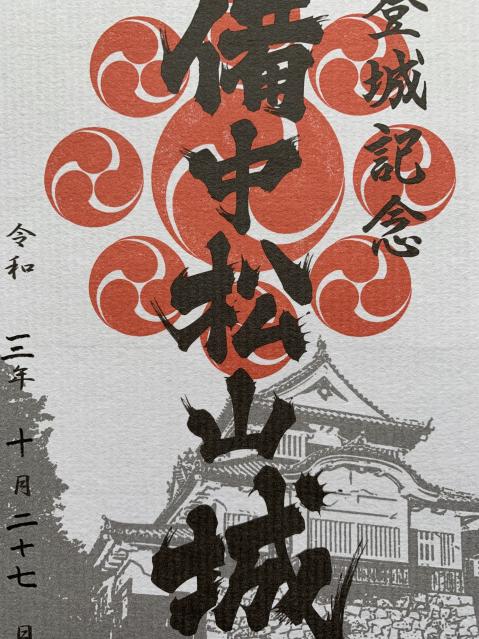 登城記念
備中松山城
令和 三年 十月二十七日